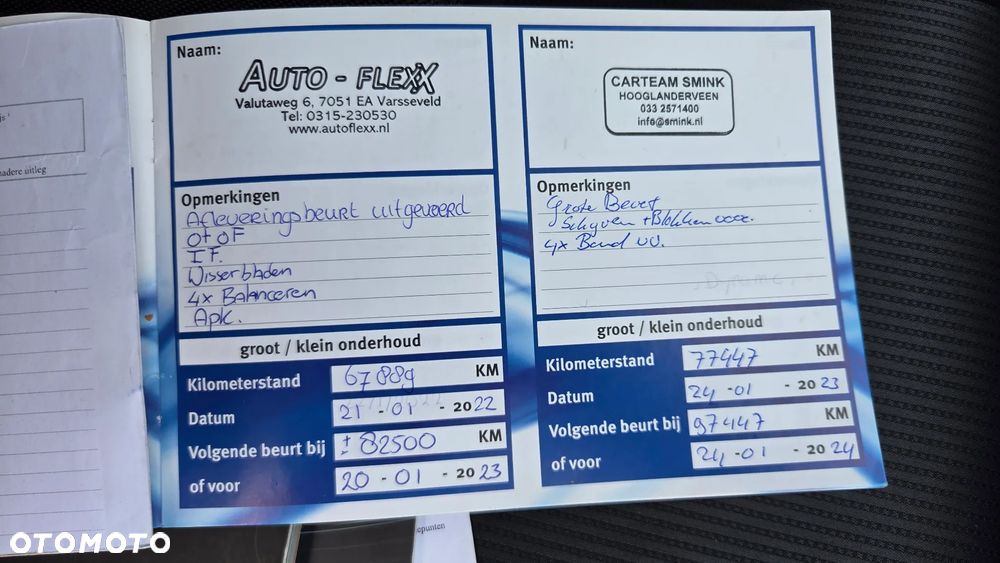 js
nadere uitleg
Naam:
AUTO - FLEXX
Valutaweg 6, 7051 EA Varsseveld
Tel: 0315-230530
www.autoflexx.nl
Opmerkingen
Afleveringsbeurt uitgevoerd
O+OF
I.F.
Wisserbladen
4x Balanceren
Apk.
groot / klein onderhoud
Kilometerstand 67889 KM
Datum 21 - 01 - 2022
Volgende beurt bij ± 82500 KM
of voor 20 - 01 - 2023
Naam:
CARTEAM SMINK
HOOGLANDERVEEN
033 2571400
info@smink.nl
Opmerkingen
Grote Beurt
Schyven + Blokken voor.
4x Band vv.
groot / klein onderhoud
Kilometerstand 77447 KM
Datum 24 - 01 - 2023
Volgende beurt bij 97447 KM
of voor 24 - 01 - 2024
epunten
OTOMOTO